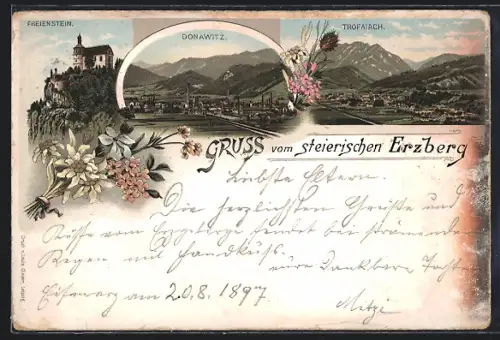 FREIENSTEIN.
DONAWITZ.
TROFAIACH.
GRUSS vom steierischen Erzberg
Liebste Eltern.
Die herzlichsten Grüße und
Küsse vom Erzberge sendet bei strömendem
Regen mit Handkuß.
eure dankbare Tochter
Eisenerz am 20.8.1897
Mitzi